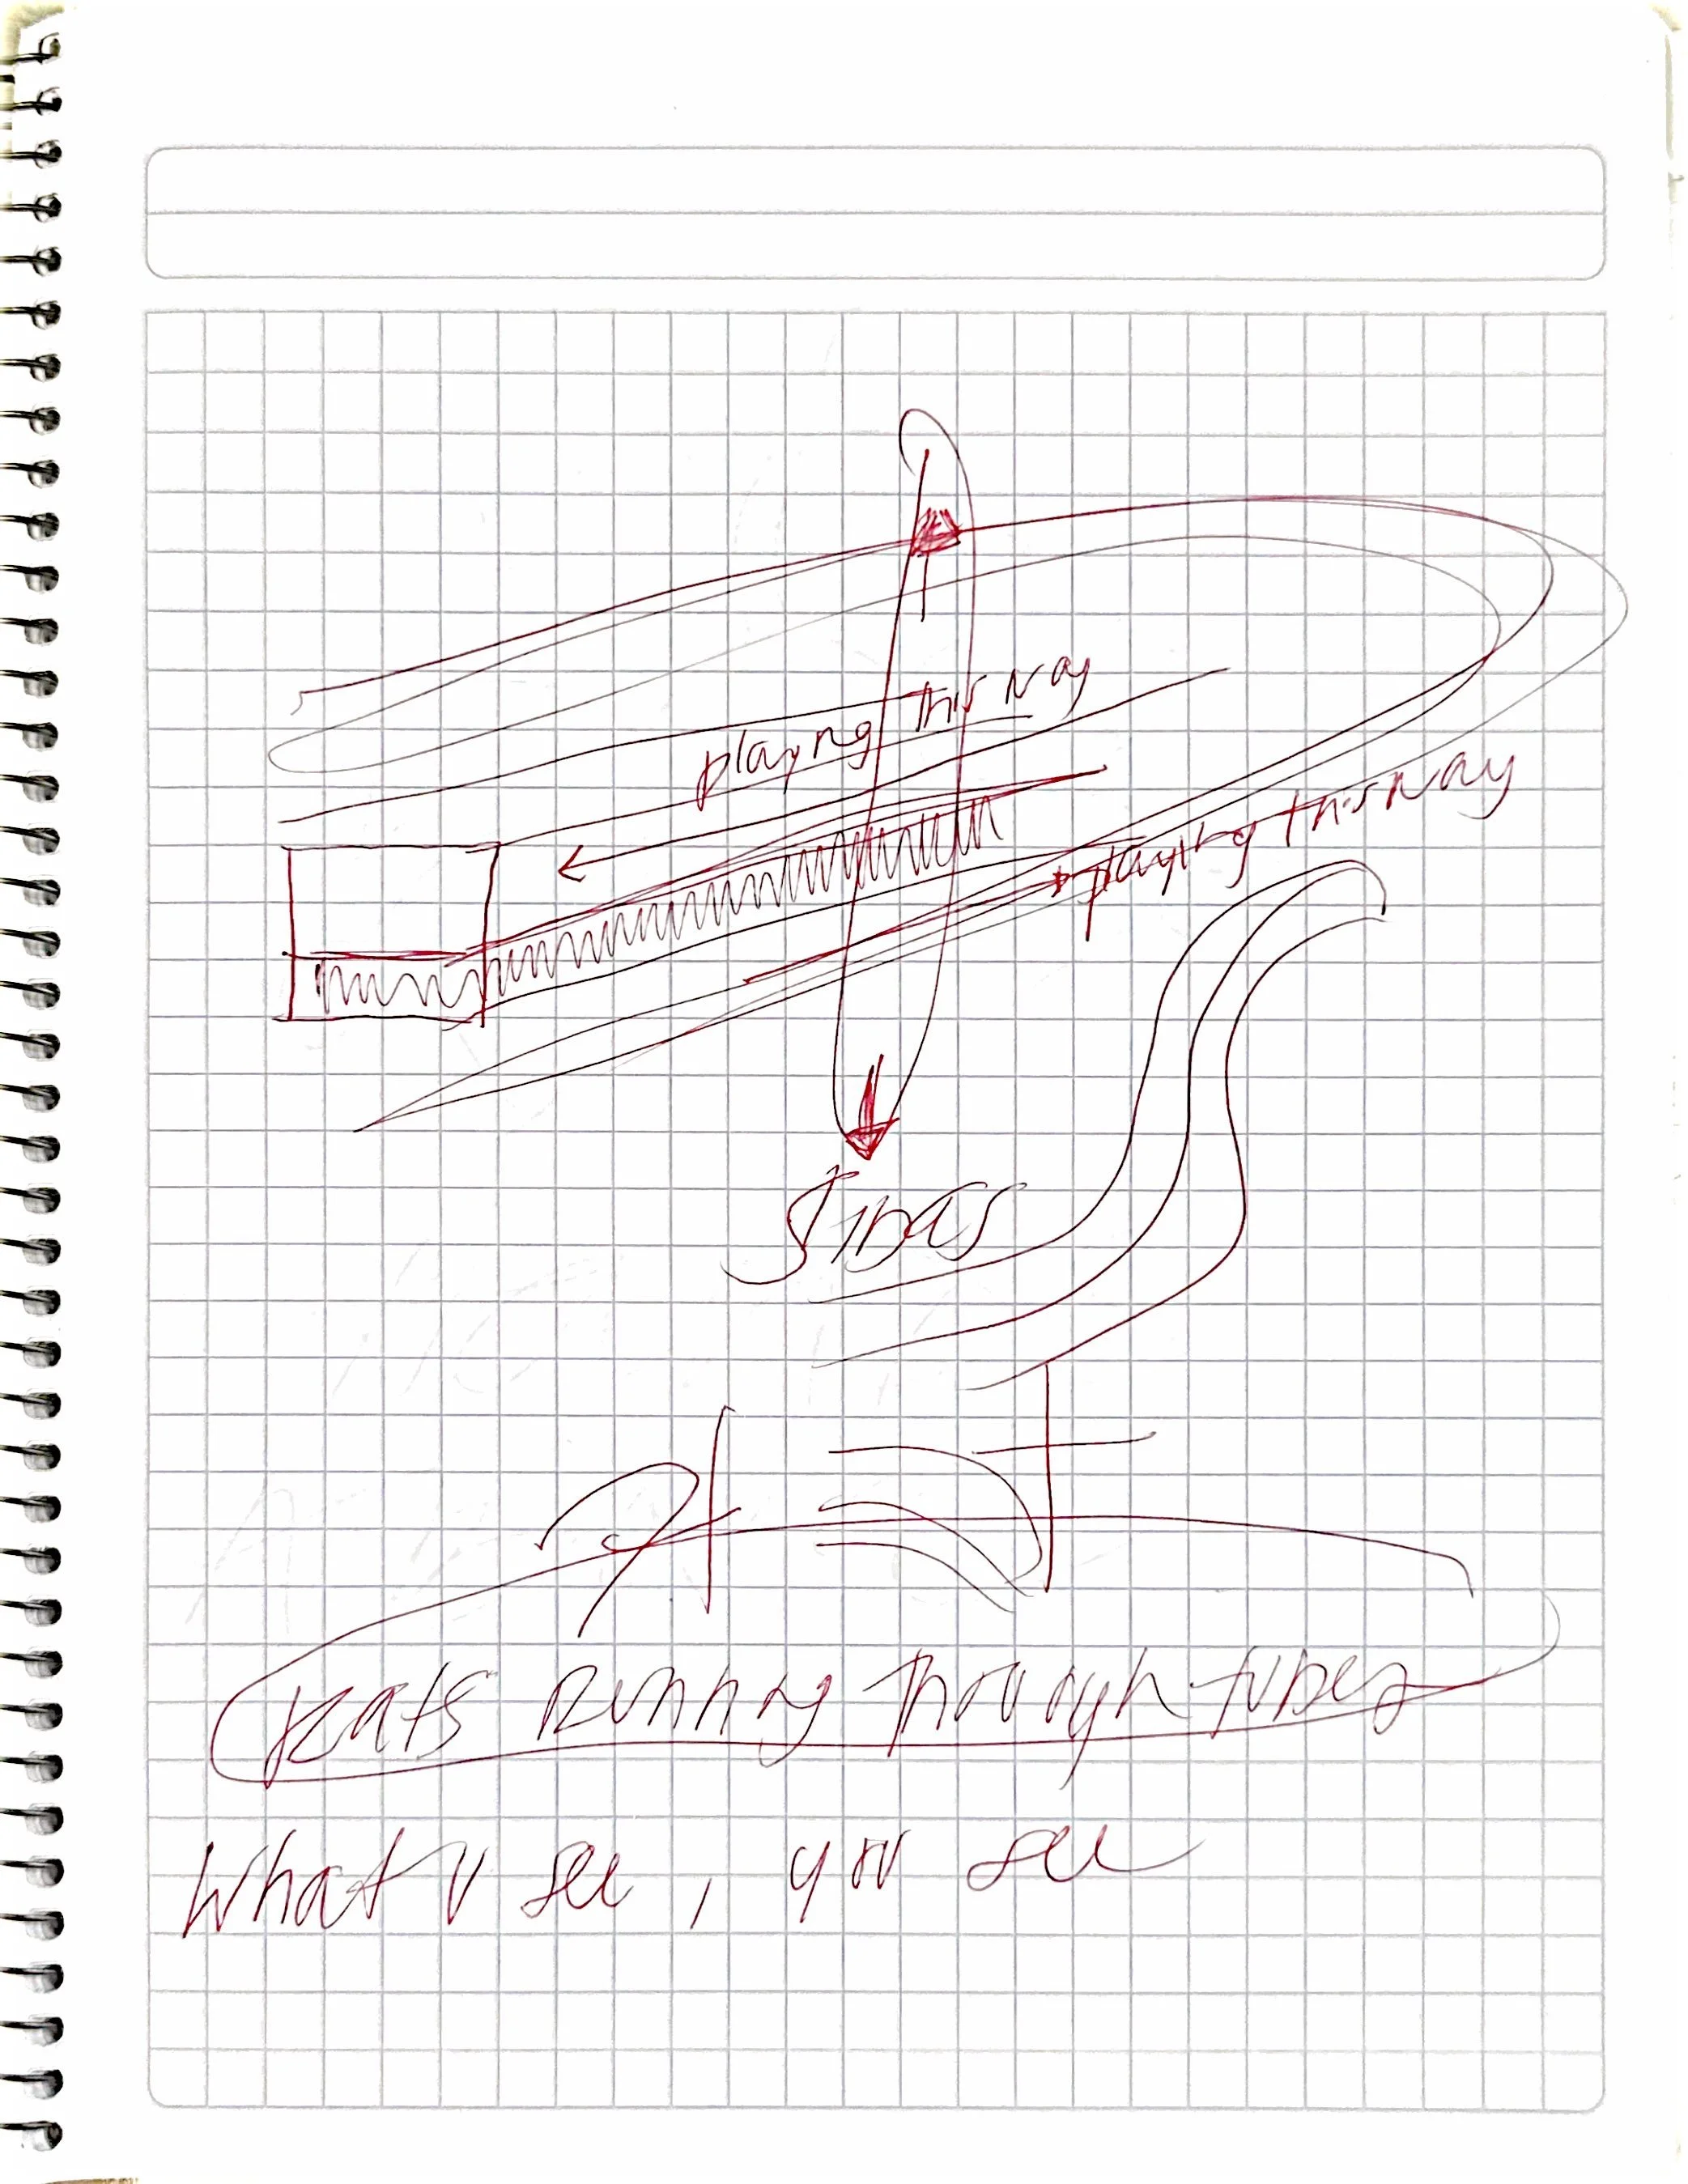 playing this way
playing this way
Rats Running Through tubes
What U see, you see